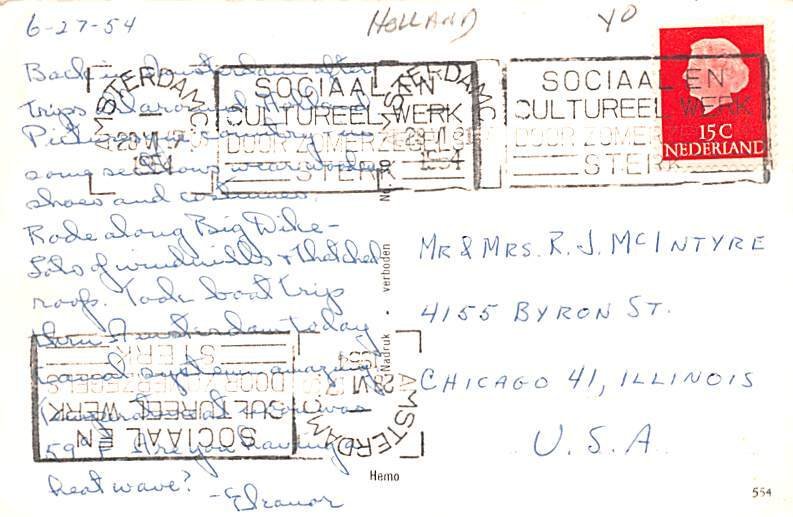 6-27-54
HOLLAND
YO
Back in Amsterdam after
trips around Holland.
Picturesque country - in
some sections wear wooden
shoes and costumes.
Rode along Big Dike -
Lots of windmills & thatched
roofs. Took boat trip
thru Amsterdam today
canal system amazing
was
59° F. Are you having a
heat wave?
- Eleanor
MR & MRS. R. J. MCINTYRE
4155 BYRON ST.
CHICAGO 41, ILLINOIS
U. S. A.
AMSTERDAM C
1954
SOCIAAL EN
CULTUREEL WERK
DOOR ZOMERZEGELS
STERK
AMSTERDAM C
1954
SOCIAAL EN
CULTUREEL WERK
DOOR ZOMERZEGELS
STERK
15 C
NEDERLAND
Nadruk - verboden
AMSTERDAM
28 VI
1954
SOCIAAL EN
CULTUREEL WERK
DOOR ZOMERZEGELS
STERK
Hemo
554